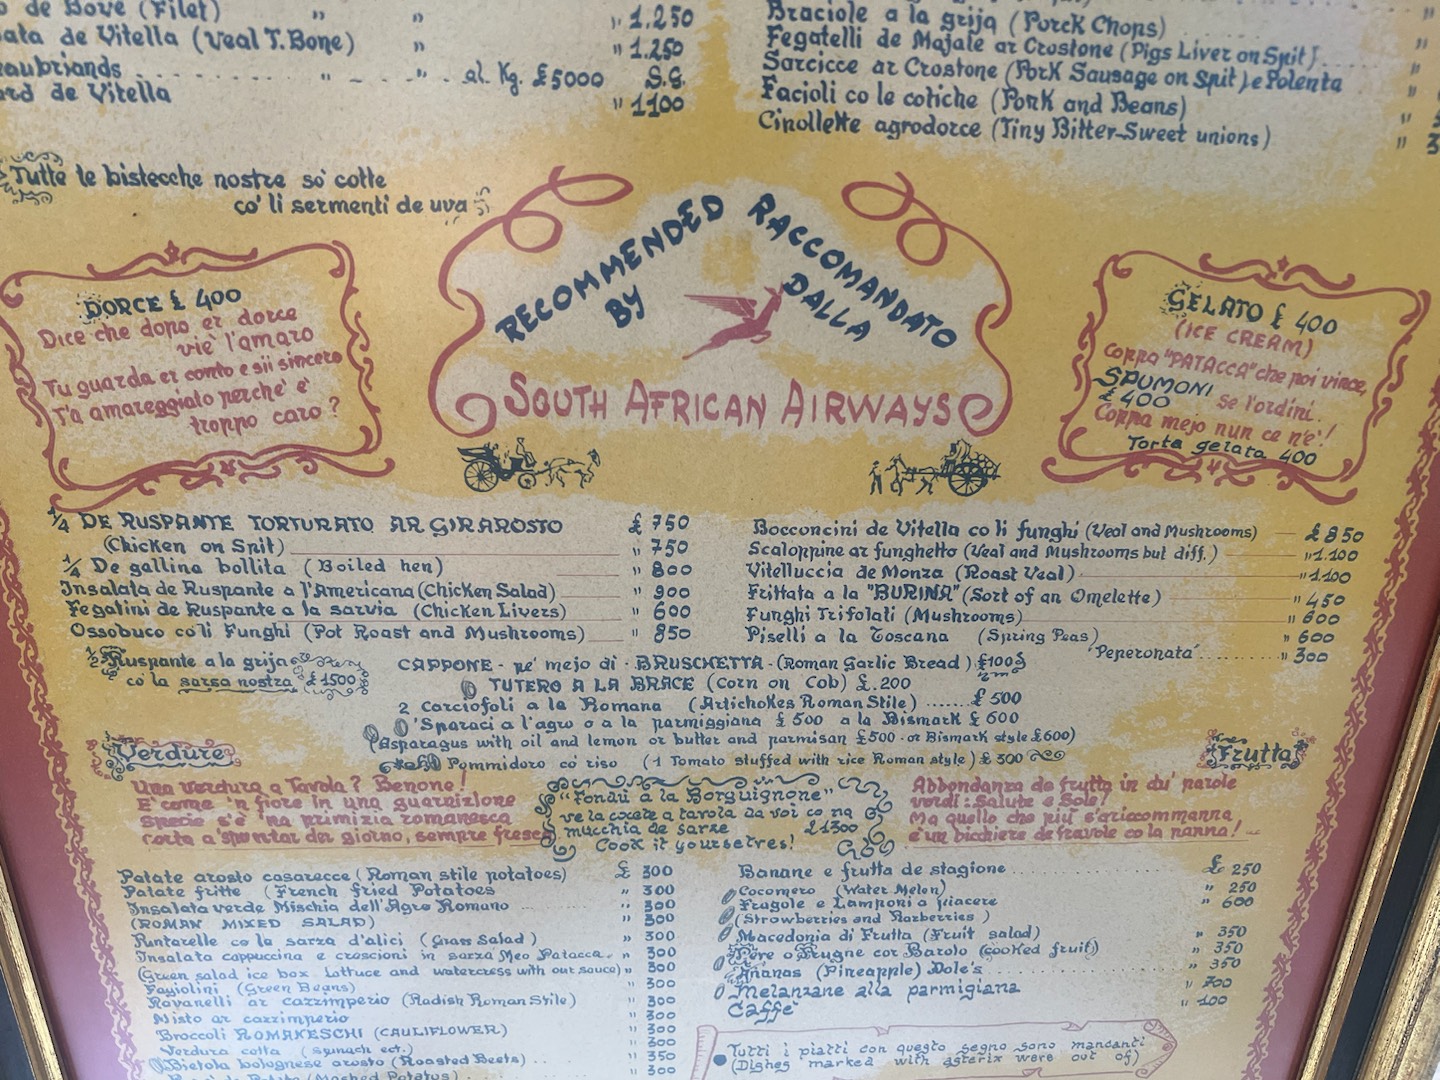 de Bove (Filet) " " " 1.250
ata de Vitella (Veal T. Bone) " " 1.250
eaubriands " " al Kg. £ 5000 S.G.
ard de Vitella " 1100
Braciole a la grija (Porck Chops)
Fegatelli de Majale ar Crostone (Pigs Liver on Spit) "
Sarcicce ar Crostone (Pork Sausage on Spit) e Polenta "
Facioli co le cotiche (Pork and Beans) "
Cipollette agrodorce (Tiny Bitter-Sweet unions) " 3
Tutte le bistecche nostre so' cotte
co' li sermenti de uva
DORCE £ 400
Dice che dopo er dorce
vie' l'amaro
Tu guarda er conto e sii sincero
T'a amareggiato perche' e'
troppo caro?
RECOMMENDED BY
RACCOMANDATO DALLA
SOUTH AFRICAN AIRWAYS
GELATO £ 400
(ICE CREAM)
Coppa "PATACCA" che poi vince,
SPUMONI se l'ordini.
£ 400
Coppa mejo nun ce n'e'!
Torta gelata 400
1/4 DE RUSPANTE TORTURATO AR GIRAROSTO £ 750
(Chicken on Spit) " 750
1/4 De gallina bollita (Boiled hen) " 800
Insalata de Ruspante a l'Americana (Chicken Salad) " 900
Fegatini de Ruspante a la sarvia (Chicken Livers) " 600
Ossobuco co li Funghi (Pot Roast and Mushrooms) " 850
Bocconcini de Vitella co li funghi (Veal and Mushrooms) £ 850
Scaloppine ar funghetto (Veal and Mushrooms but diff.) " 1.100
Vitelluccia de Monza (Roast Veal) " 1.100
Frittata a la "BURINA" (Sort of an Omelette) " 450
Funghi Trifolati (Mushrooms) " 600
Piselli a la Toscana (Spring Peas) " 600
"Peperonata" " 300
1/2 Ruspante a la grija
co' la sarsa nostra £ 1500
CAPPONE - pe' mejo di - BRUSCHETTA - (Roman Garlic Bread) £ 100
TUTERO A LA BRACE (Corn on Cob) £. 200
2 Carciofoli a la Romana (Artichokes Roman Stile) £ 500
'Sparaci a l'agro o a la parmiggiana £ 500 a la Bismark £ 600
(Asparagus with oil and lemon or butter and parmisan £ 500 - or Bismark style £ 600)
Pommidoro co' riso (1 Tomato stuffed with rice Roman style) £ 300
Verdure
Una verdura a Tavola? Benone!
E' come 'n fiore in una guarnizione
Specie s'e' 'na primizia romanesca
corta a 'spuntar der giorno, sempre fresca
"Fondü a la Borguignone"
ve la cocete a tavola da voi co na
mucchia de sarze £ 1300
Cook it yourselves!
Frutta
Abbondanza de frutta in du' parole
vordi: Salute e Sole!
Ma quello che piu' s'ariccommanna
e' un bicchiere de fravole co la panna!
Patate arosto casarecce (Roman stile potatoes) £ 300
Patate fritte (French fried Potatoes " 300
Insalata verde Mischia dell'Agro Romano " 300
(ROMAN MIXED SALAD) " 300
Puntarelle co la sarza d'alici (Grass Salad) " 300
Insalata cappuccina e crescioni in sarza Meo Patacca " 300
(Green salad ice box lottuce and watercress with our sauce) " 300
Fagiolini (Green Beans) " 300
Ravanelli ar cazzimperio (Radish Roman Stile) " 300
Misto ar cazzimperio " 300
Broccoli ROMANESCHI (CAULIFLOWER) " 300
Verdura cotta (spinach ect.) " 300
Bietola bolognese arosto (Roasted Beets) " 350
(Mashed Potatos) " 300
Banane e frutta de stagione £ 250
Cocomero (Water Melon) " 250
Fragole e Lamponi a piacere " 600
(Strowberries and Razberries)
Macedonia di Frutta (Fruit salad) " 350
Pere o Prugne cor Barolo (cooked fruit) " 350
Ananas (Pineapple) Dole's " 350
Melanzane alla parmigiana " 700
Caffe' " 100
Tutti i piatti con questo segno sono mancanti
(Dishes marked with asterix were out of)